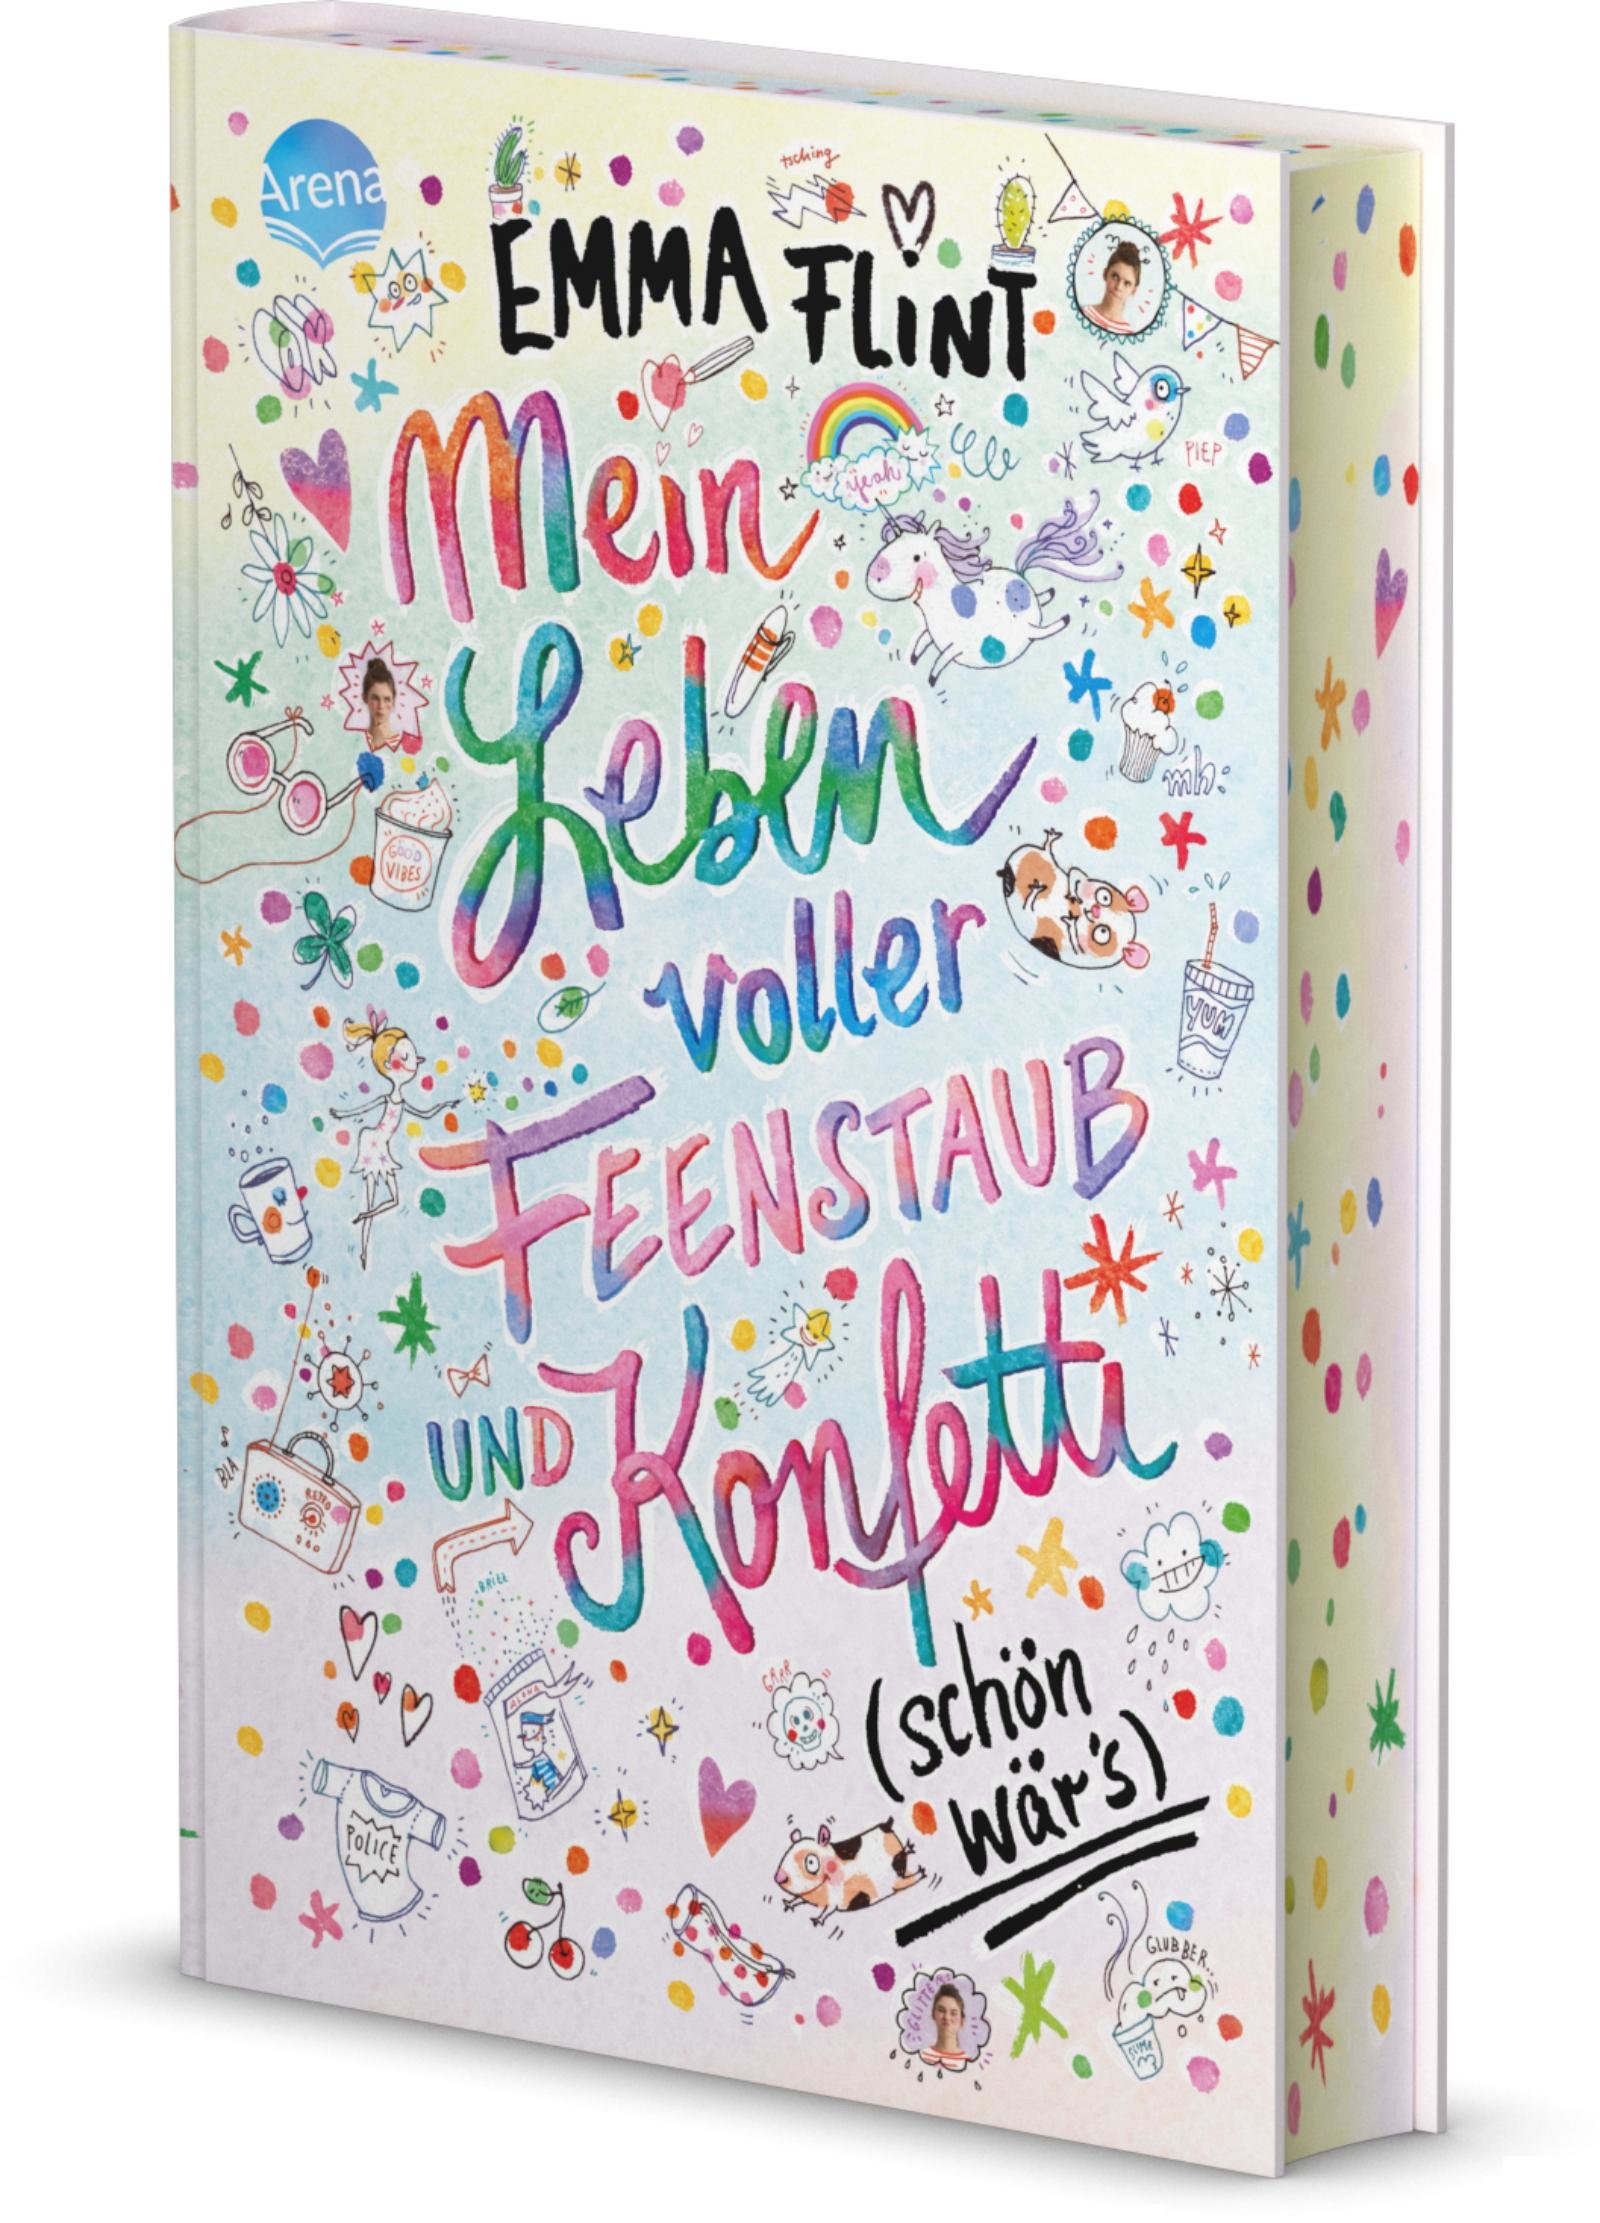 Arena
tsching
EMMA FLINT
Mein
yeah
PIEP
Leben
mh!
GOOD
VIBES
voller
YUM
FEENSTAUB
UND Konfetti
BLA
RETRO
BRITZ
ALOHA
GRRR
(schön
wär's)
POLICE
GLUBBER...
GLITTER
SLIME